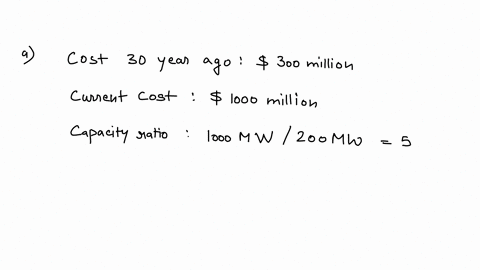 a) Cost 30 year ago : $ 300 million
Current Cost : $ 1000 million
Capacity ratio : 1000 MW / 200 MW = 5